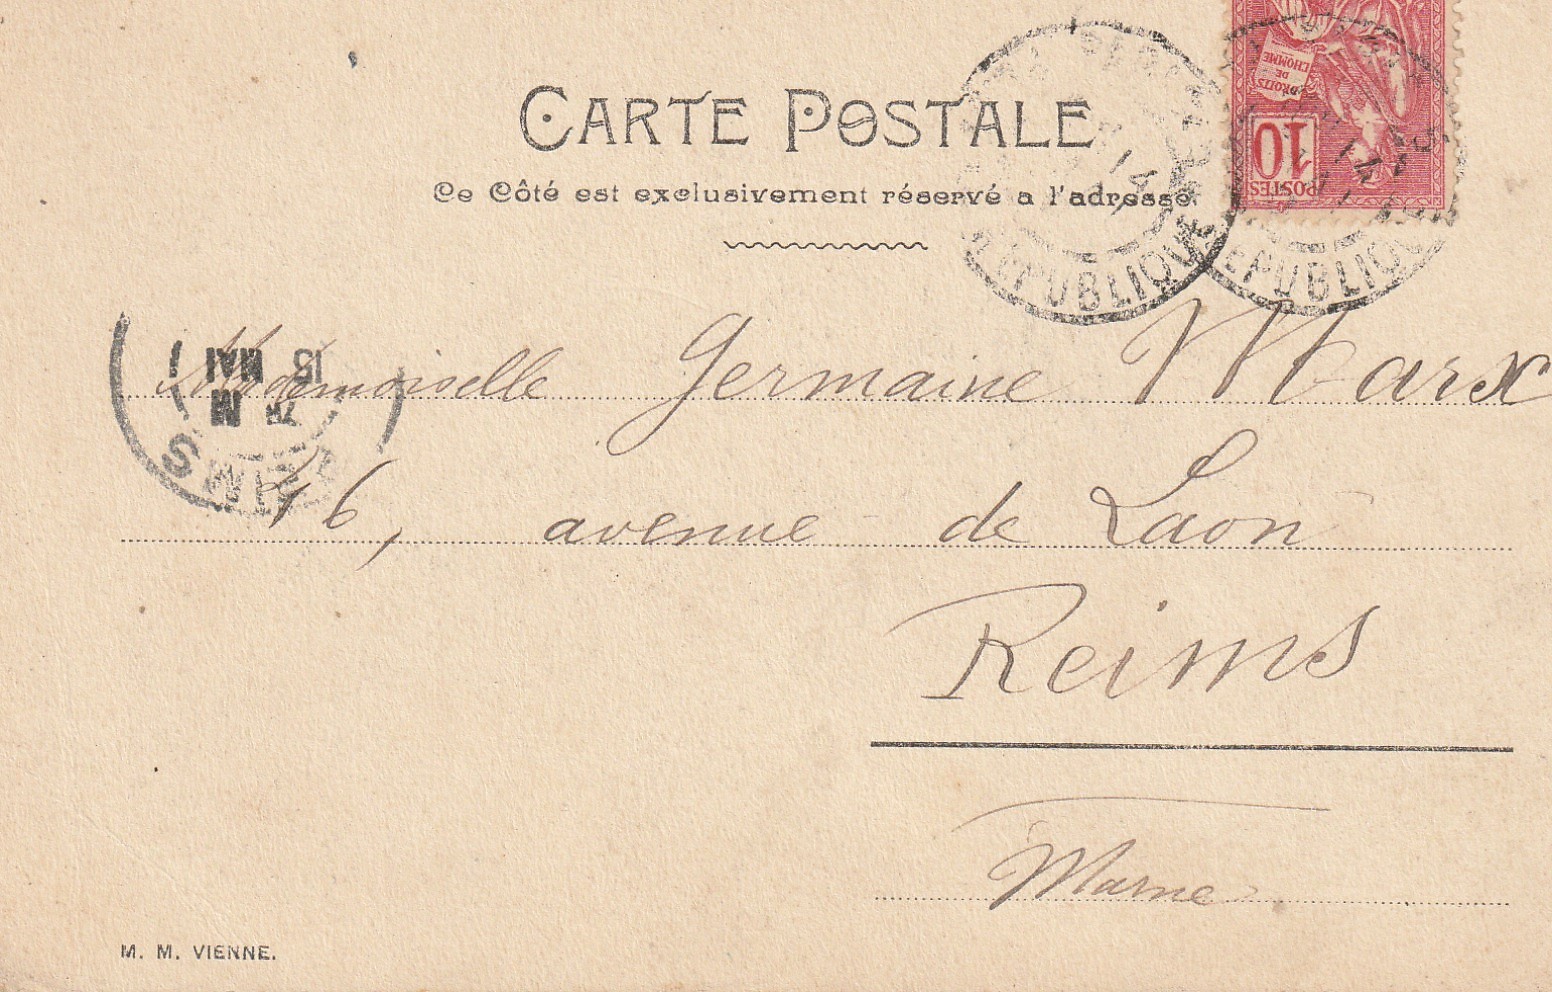 CARTE POSTALE
Ce Côté est exclusivement réservé a l'adresse
DROITS
DE
L'HOMME
10
POSTES
RÉPUBLIQUE
RÉPUBLIQUE
15
MAI
7 M
REIMS
Mademoiselle Germaine Marx
16, avenue de Laon
Reims
Marne
M. M. VIENNE.